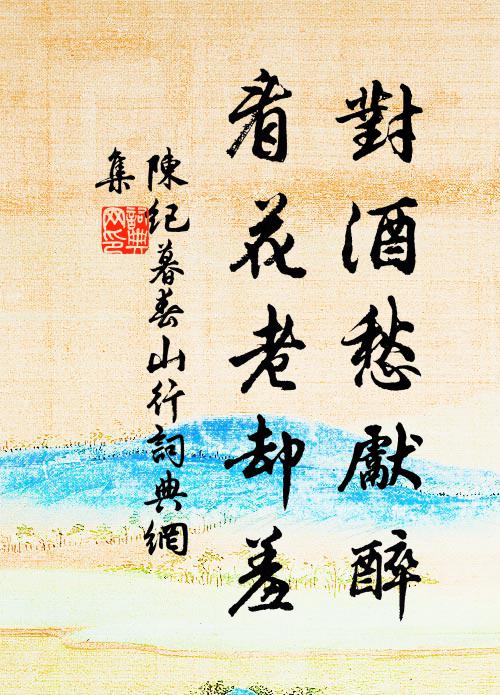 對酒愁獻醉
看花老却羞
陳紀暮春山行詞典網
集
詞典
网印